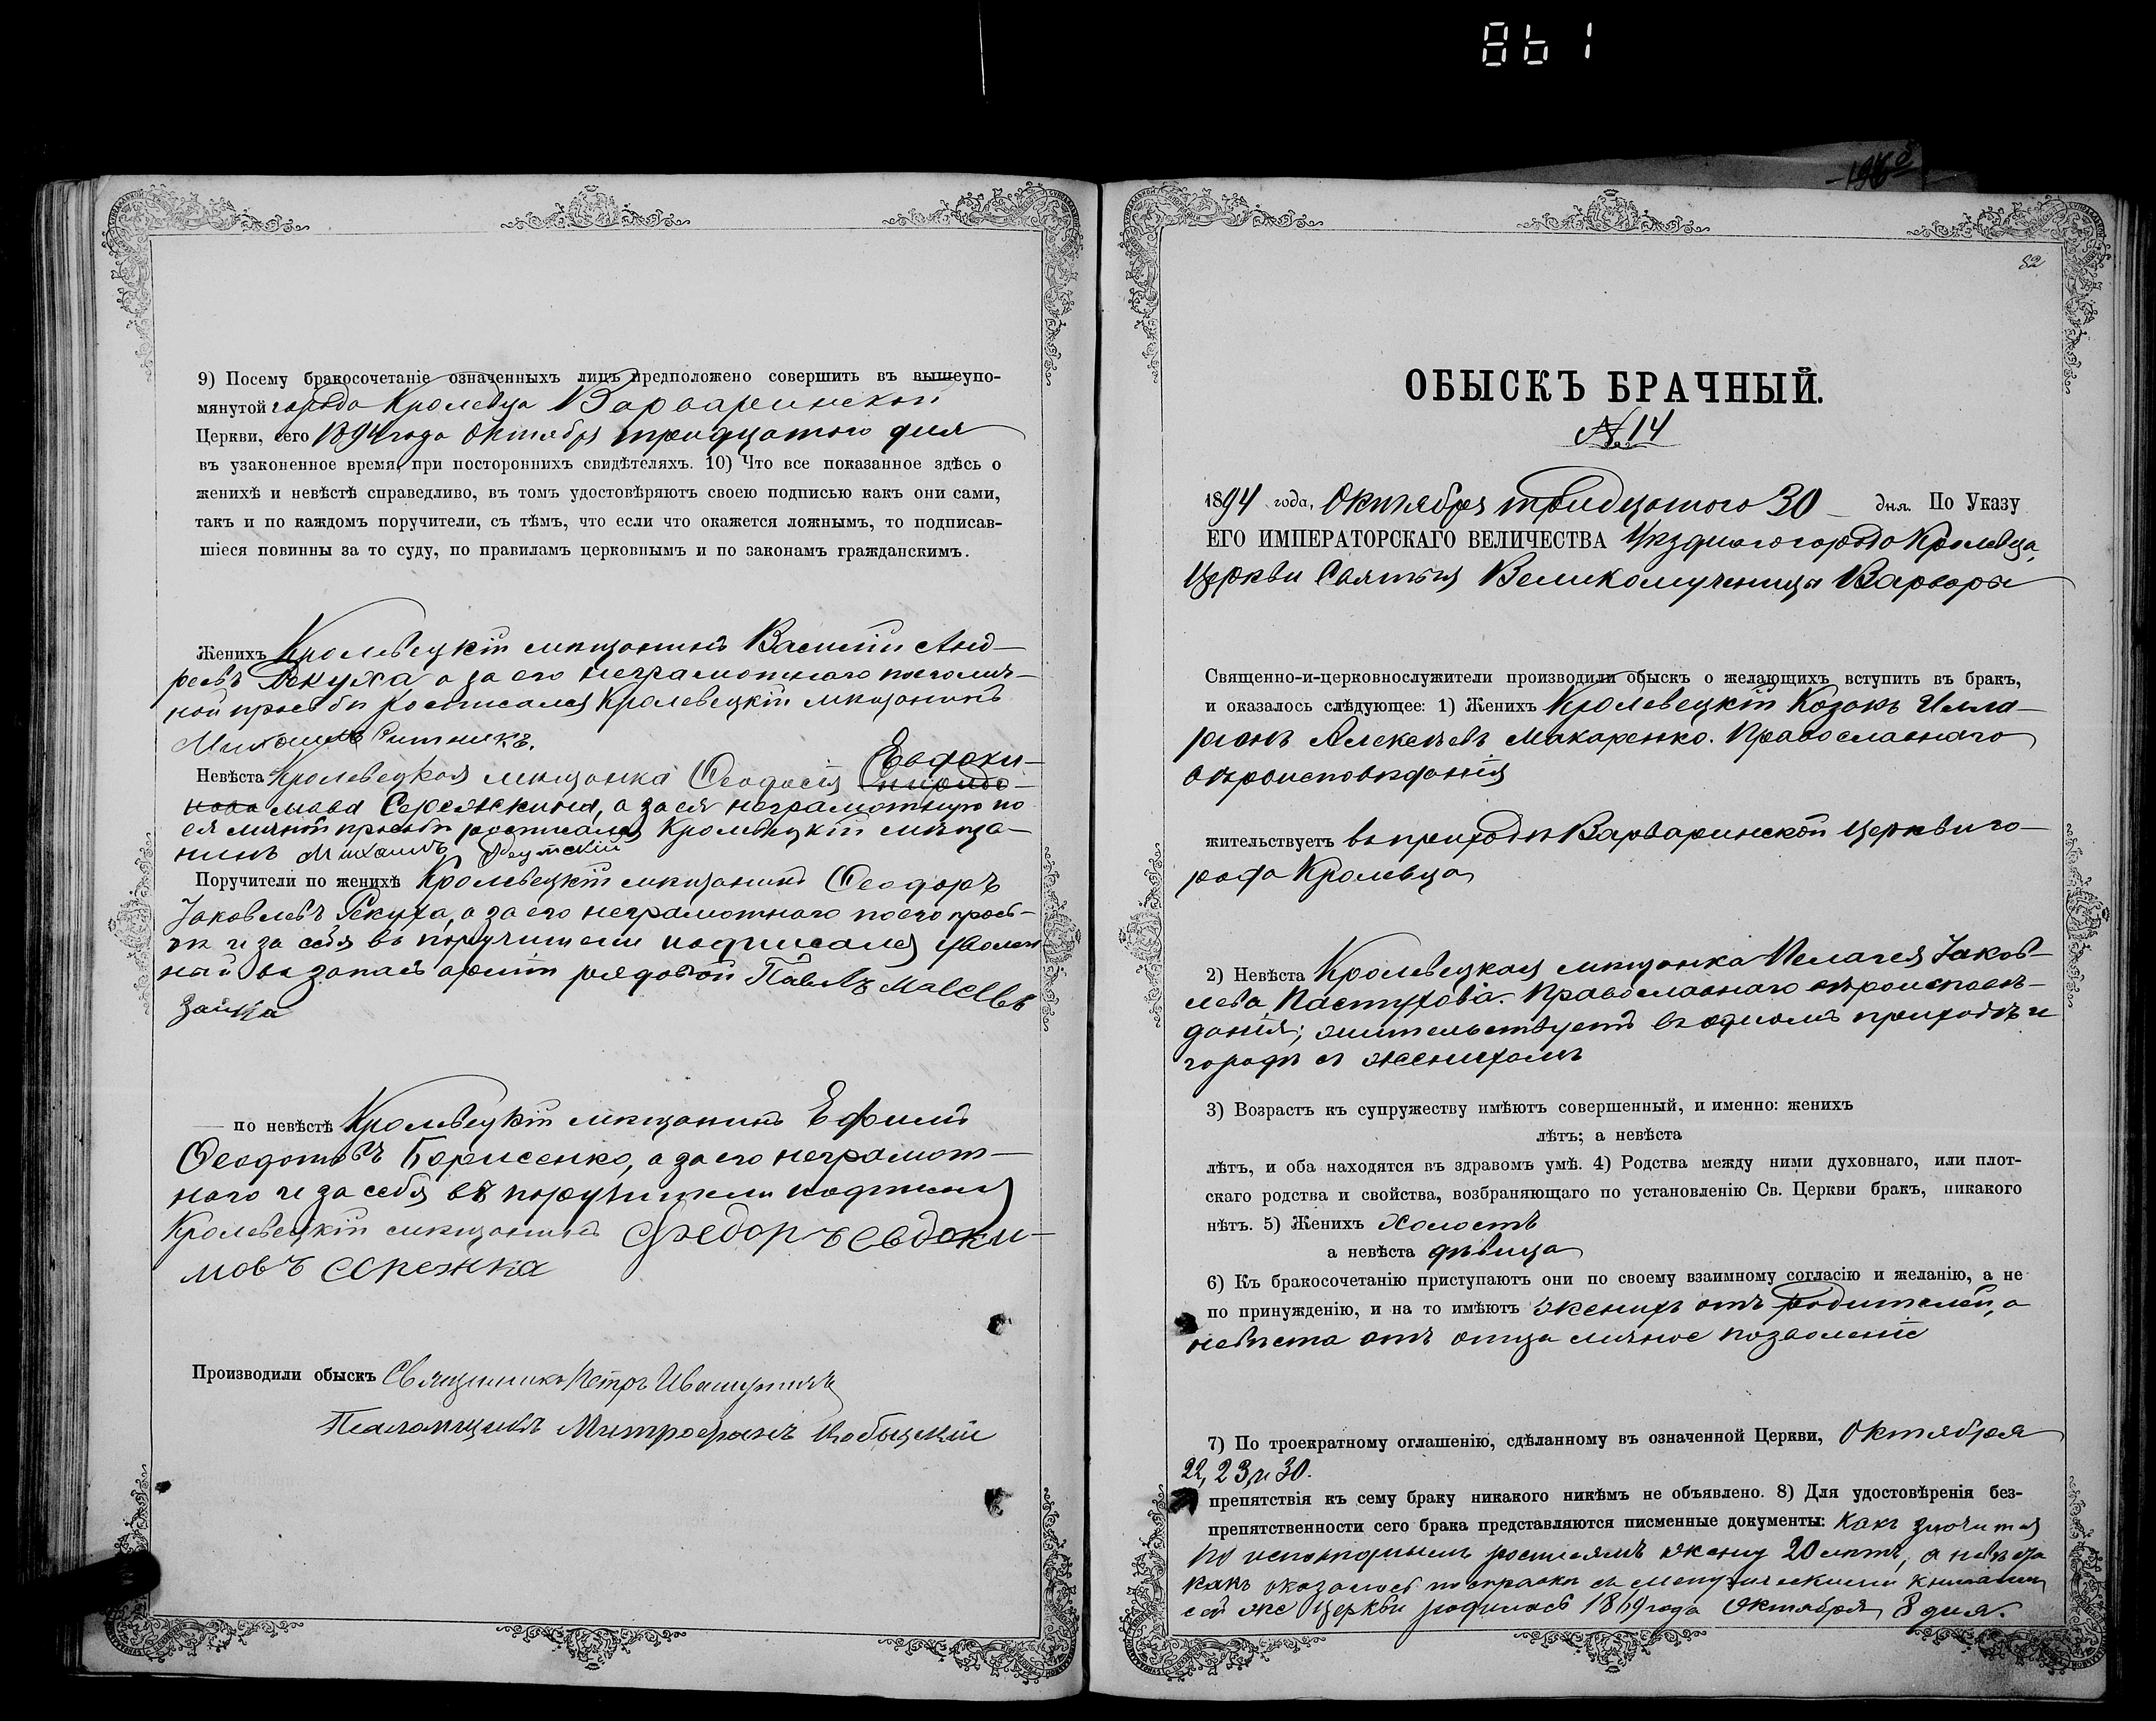 861
9) Посему бракосочетаніе означенныхъ лицъ предположено совершить въ вышеупо-
мянутой города Кролевца Варваринской
Церкви, сего 1894 года Октября тридцатого дня
въ узаконенное время, при постороннихъ свидѣтеляхъ. 10) Что все показанное здѣсь о
женихѣ и невѣстѣ справедливо, въ томъ удостовѣряютъ своею подписью какъ они сами,
такъ и по каждомъ поручители, съ тѣмъ, что если что окажется ложнымъ, то подписав-
шіеся повинны за то суду, по правиламъ церковнымъ и по законамъ гражданскимъ.
Женихъ Кролевецкій мѣщанинъ Василій Анд-
реевъ Рекуха а за его неграмотного по его лич-
ной просьбѣ росписался Кролевецкій мѣщанинъ
Михаилъ
Невѣста Кролевецкая мѣщанка Ѳеодосія Евдоки-
мова Сережкина, а за ея неграмотную по
ея личной просьбѣ росписался Кролевецкій мѣща-
нинъ Михаилъ
Поручители по женихѣ Кролевецкій мѣщанинъ Ѳеодоръ
Іаковлевъ Рекуха, а за его неграмотного по его прось-
бѣ и за себя въ поручители подписался уволен-
ный въ запасъ арміи рядовой Павелъ
Заика
по невѣстѣ Кролевецкій мѣщанинъ Ефимъ
Ѳеодотовъ Борисенко, а за его неграмот-
ного и за себя въ поручители подписался
Кролевецкій мѣщанинъ Федоръ Евдоки-
мовъ Сережка
Производили обыскъ Священникъ Петръ
Псаломщикъ Митрофанъ
82
ОБЫСКЪ БРАЧНЫЙ.
№ 14
1894 года, Октября тридцатого 30 дня. По Указу
ЕГО ИМПЕРАТОРСКАГО ВЕЛИЧЕСТВА Уѣздного города Кролевца,
Церкви Святыя Великомученицы Варвары
Священно-и-церковнослужители производили обыскъ о желающихъ вступить въ бракъ,
и оказалось слѣдующее: 1) Женихъ Кролевецкій Козакъ Илла-
ріонъ Алексѣевъ Макаренко. Православнаго
вѣроисповѣданія
жительствуетъ въ приходѣ Варваринской Церкви го-
рода Кролевца
2) Невѣста Кролевецкая мѣщанка Пелагея Іаков-
лева Пастухова. Православнаго вѣроисповѣ-
данія; жительствуетъ въ одномъ приходѣ и
городѣ съ женихомъ
3) Возрастъ къ супружеству имѣютъ совершенный, и именно: женихъ
лѣтъ; а невѣста
лѣтъ, и оба находятся въ здравомъ умѣ. 4) Родства между ними духовнаго, или плот-
скаго родства и свойства, возбраняющаго по установленію Св. Церкви бракъ, никакого
нѣтъ. 5) Женихъ Холостъ
а невѣста дѣвица
6) Къ бракосочетанію приступаютъ они по своему взаимному согласію и желанію, а не
по принужденію, и на то имѣютъ женихъ отъ родителей, а
невѣста отъ отца личное позволеніе
7) По троекратному оглашенію, сдѣланному въ означенной Церкви, Октября
22, 23, и 30.
препятствія къ сему браку никакого никѣмъ не объявлено. 8) Для удостовѣренія без-
препятственности сего брака представляются писменные документы: Какъ значится
по исповѣднымъ росписямъ жениху 20 лѣтъ, а невѣста
какъ оказалось по справкѣ съ метрическими книгами
сей же Церкви родилась 1869 года Октября 8 дня.